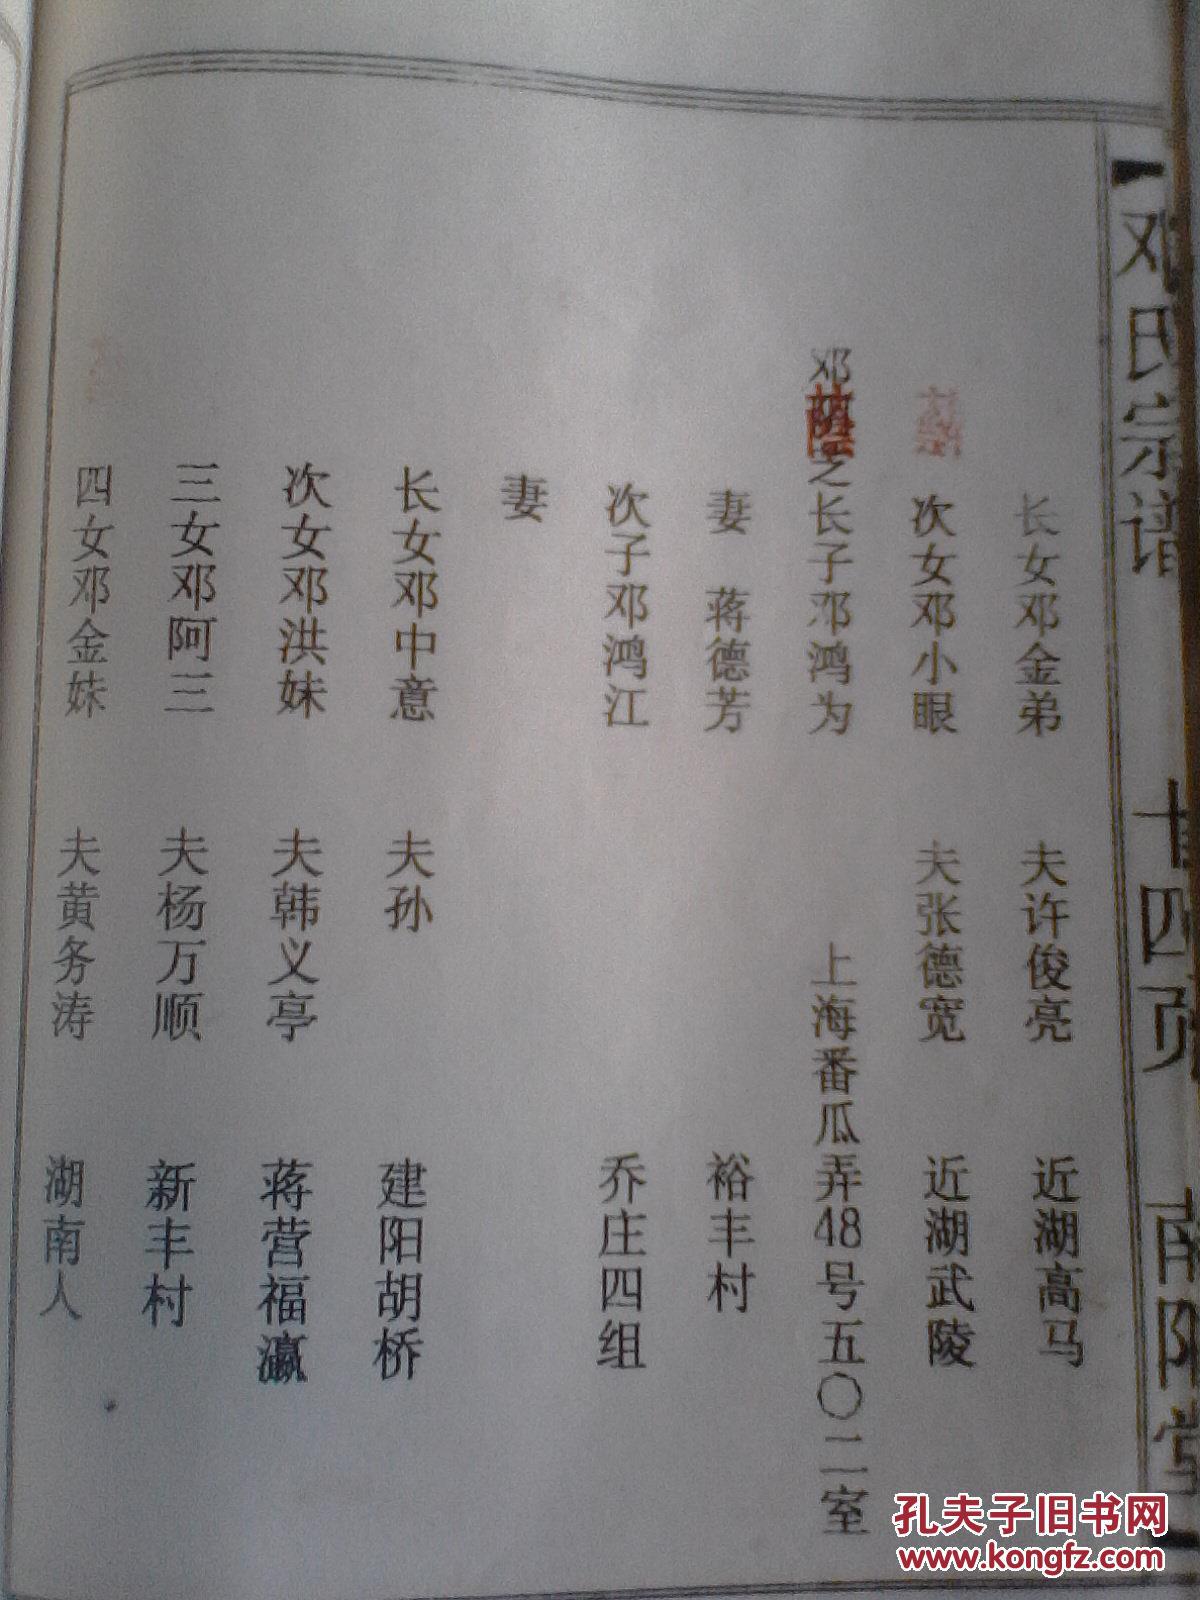 邓氏宗谱 廿四页 南阳堂
长女邓金弟 夫许俊亮 近湖高马
次女邓小眼 夫张德宽 近湖武陵
邓荫之长子邓鸿为 上海番瓜弄48号五〇二室
妻 蒋德芳 裕丰村
次子邓鸿江 乔庄四组
妻
长女邓中意 夫孙 建阳胡桥
次女邓洪妹 夫韩义亭 蒋营福瀛
三女邓阿三 夫杨万顺 新丰村
四女邓金妹 夫黄务涛 湖南人
孔夫子旧书网
www.kongfz.com